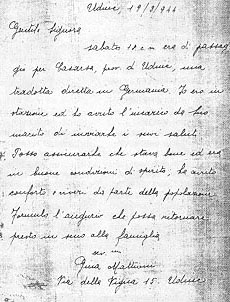 Udine, 19/9/944
Gentile Signora
sabato 18 c.m. era di passag
gio per Casarsa, prov. di Udine, una
tradotta diretta in Germania. Io ero in
stazione ed ho avuto l'incarico da suo
marito di inviarle i suoi saluti.
Posso assicurarle che stava bene ed era
in buone condizioni di spirito, ha avuto
conforto e viveri da parte della popolazione.
Formulo l'augurio che possa ritornare
presto in seno alla famiglia
Gina Mattioni
Via della Vigna 15. Udine